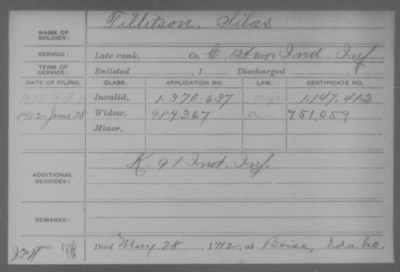 NAME OF SOLDIER: Tillitson, Silas
SERVICE: Late rank, Co. C, 124 Reg't Ind. Inf
TERM OF SERVICE: Enlisted , 1 Discharged
DATE OF FILING. CLASS. APPLICATION NO. LAW. CERTIFICATE NO.
Invalid, 1.370.637 1.147.413
1912 June 28 Widow, 989367 751,059
Minor,
ADDITIONAL SERVICES: K. 91 Ind. Inf.
REMARKS:
Died May 28, 1912, at Boise, Idaho.